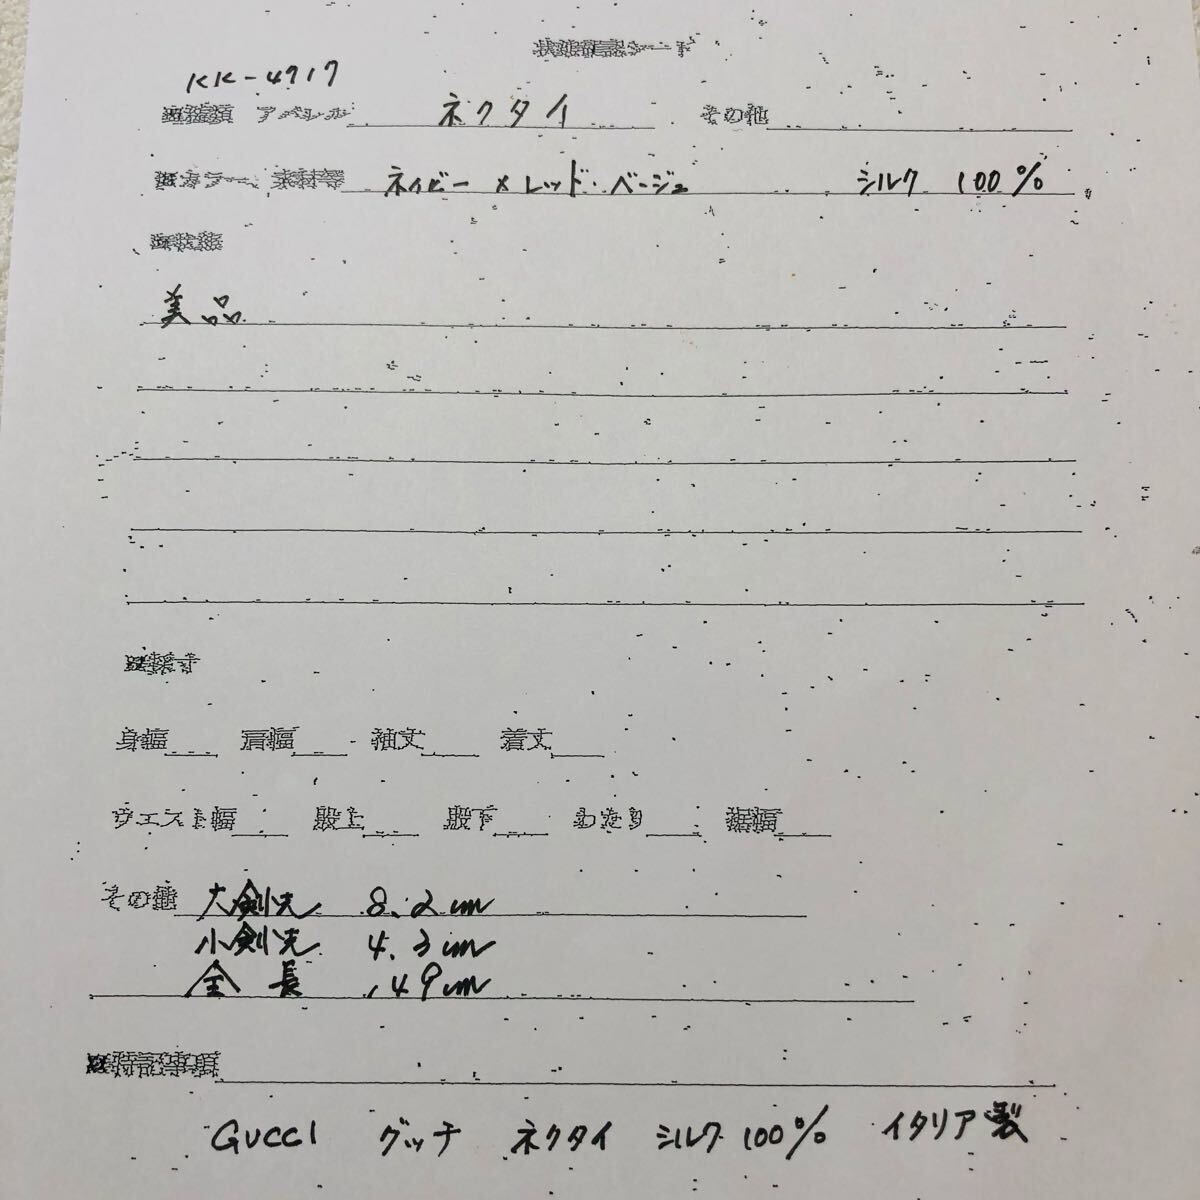 状態確認シート
KK-4717
■種類 アパレル ネクタイ その他
■カラー、素材等 ネイビー×レッド・ベージュ シルク 100%
■状態
美品
■採寸
身幅 肩幅 袖丈 着丈
ウエスト幅 股上 股下 わたり 裾幅
その他 大剣先 8.2cm
小剣先 4.3cm
全長 149cm
■特記事項
GUCCI グッチ ネクタイ シルク 100% イタリア製